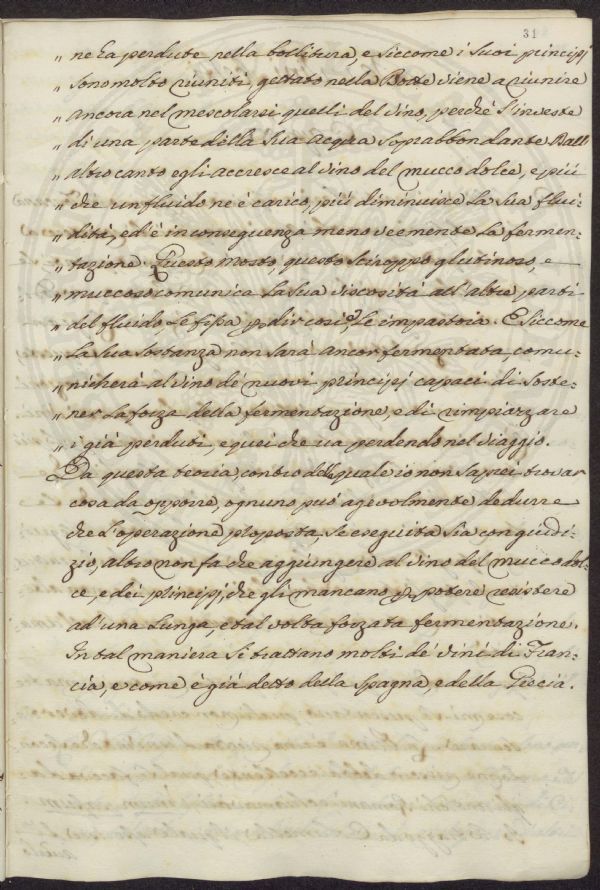 31
„ ne ha perdute nella bollitura, e siccome i suoi principj
„ sono molto riuniti, gettato nella Botte viene a riunire
„ ancora nel mescolarsi quelli del vino, perché s'investe
„ di una parte della sua acqua soprabbondante. Dall
„ altro canto egli accresce al vino del mucco dolce, e più
„ che un fluido ne è carico, più diminuisce la sua flui-
„ dità, ed è in conseguenza meno veemente la fermen-
„ tazione. Questo mosto, questo sciroppo glutinoso, e
„ muccoso comunica la sua viscosità all'altre parti
„ del fluido le fissa p dir così, e le impastoia. E siccome
„ la sua sostanza non sarà ancor fermentata, comu-
„ nicherà al vino de' nuovi principj capaci di soste-
„ ner la forza della fermentazione, e di rimpiazzare
„ i già perduti, e quei che va perdendo nel viaggio.
Da questa teoria, contro della quale io non saprei trovar
cosa da opporre, ognuno può agevolmente dedurre
che l'operazione proposta, se eseguita sia con giudi-
zio, altro non fa che aggiungere al vino del mucco dol-
ce, e dei principj, che gli mancano p potere resistere
ad una lunga, e tal volta forzata fermentazione.
In tal maniera si trattano molti de' vini di Fran-
cia, e come è già detto della Spagna, e della Grecia.